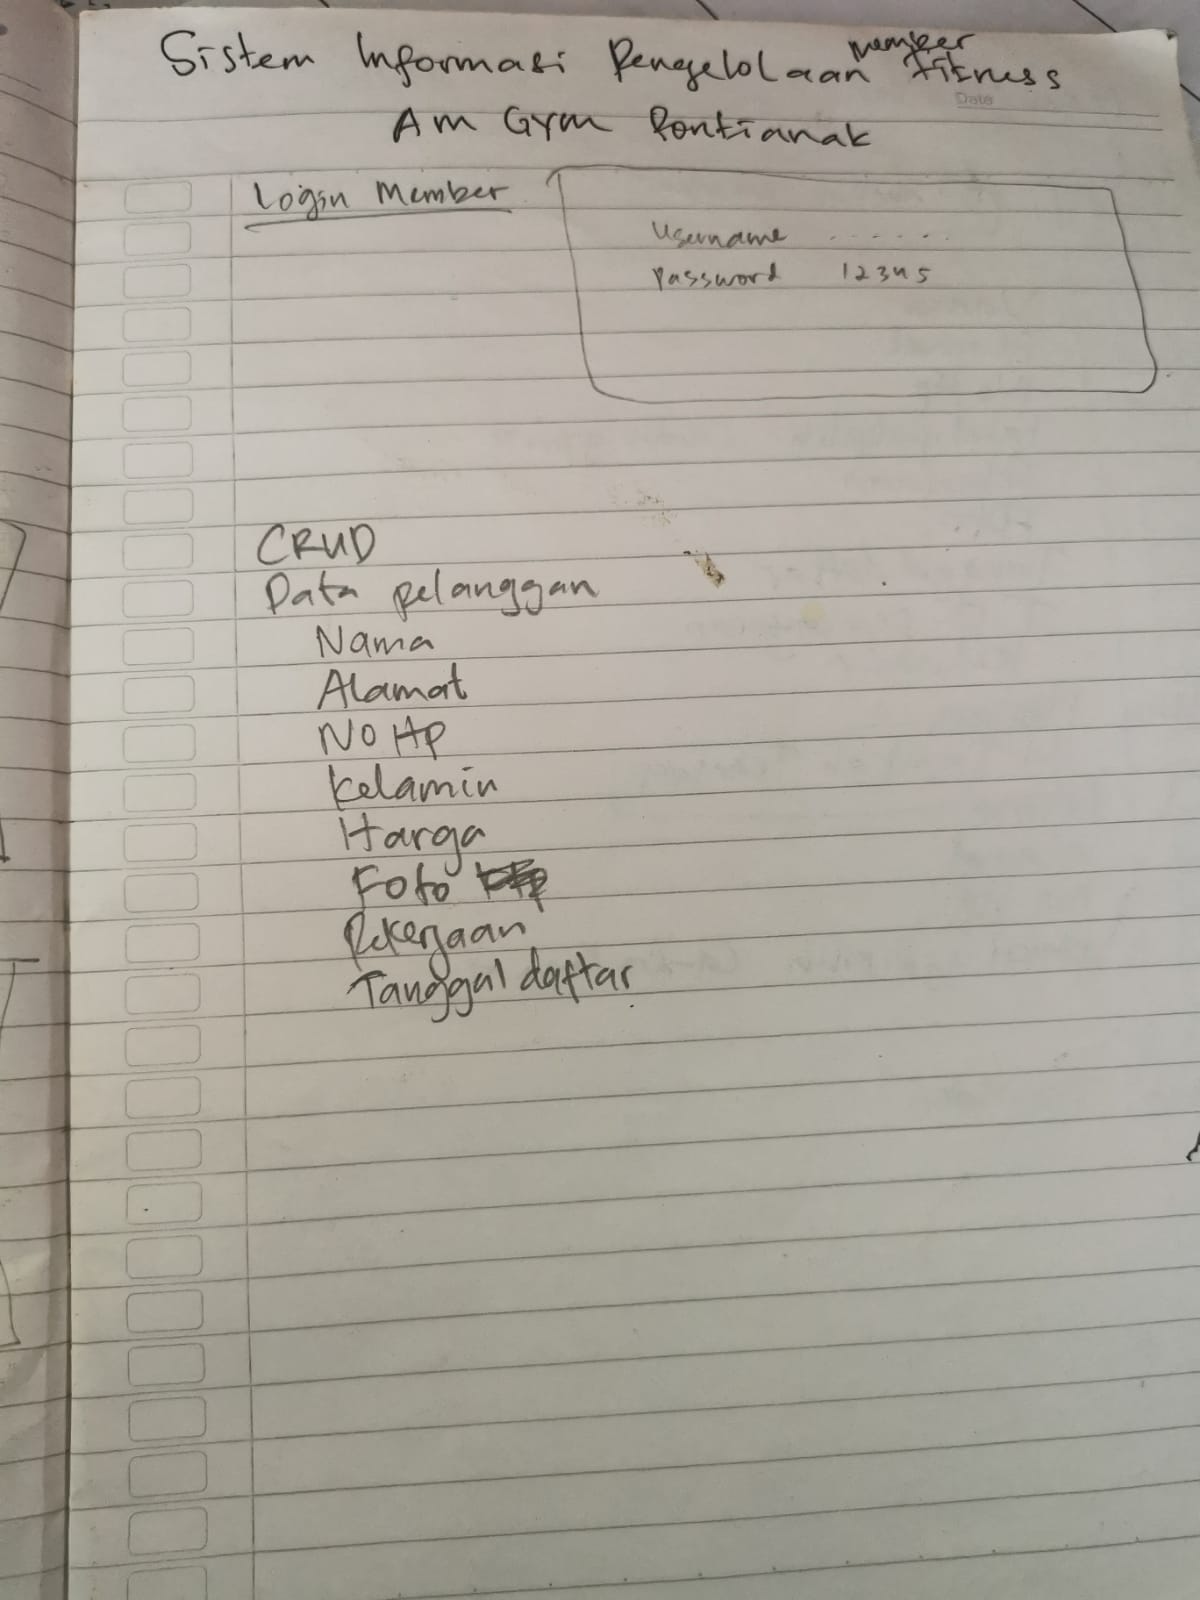 Sistem Informasi Pengelolaan member Fitness
Date
AM Gym Pontianak
Login Member
Username ......
Password 12345
CRUD
Data pelanggan
Nama
Alamat
NO HP
Kelamin
Harga
Foto
Pekerjaan
Tanggal daftar